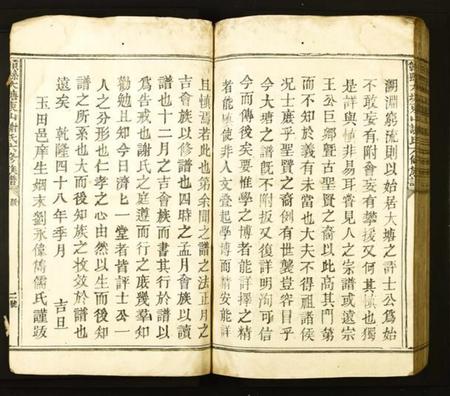 溯淵窮流則以始居大塘之諱士公爲始
不敢妄有附會妄有攀援又何其慎也獨
是詳與慎非易耳嘗見人之宗譜或遠宗
王公巨卿暨古聖賢之裔以此高其門第
而不知於義有未當也大夫不得祖諸侯
況士庶乎聖賢之裔例有世襲豈容冒乎
今大塘之譜既不附攀又復詳明洵可信
今而傳後矣要惟學之博者能詳擇之精
者能慎使非人文疊起學博而精安能詳
且慎焉若此也第余聞之譜之法正月之
吉會族以修譜也四時之孟月會族以讀
譜也十二月之吉會族而書其行於譜以
爲告戒也謝氏之庭遵而行之庶幾羣知
勸勉且知今日濟匕一堂者皆諱士公一
人之分形也仁孝之心由然以生而後知
譜之所系也大而後知族之枚敘於譜也
遠矣 乾隆四十八年季月 吉旦
玉田邑庠生烟末劉永僖儒氏謹跋